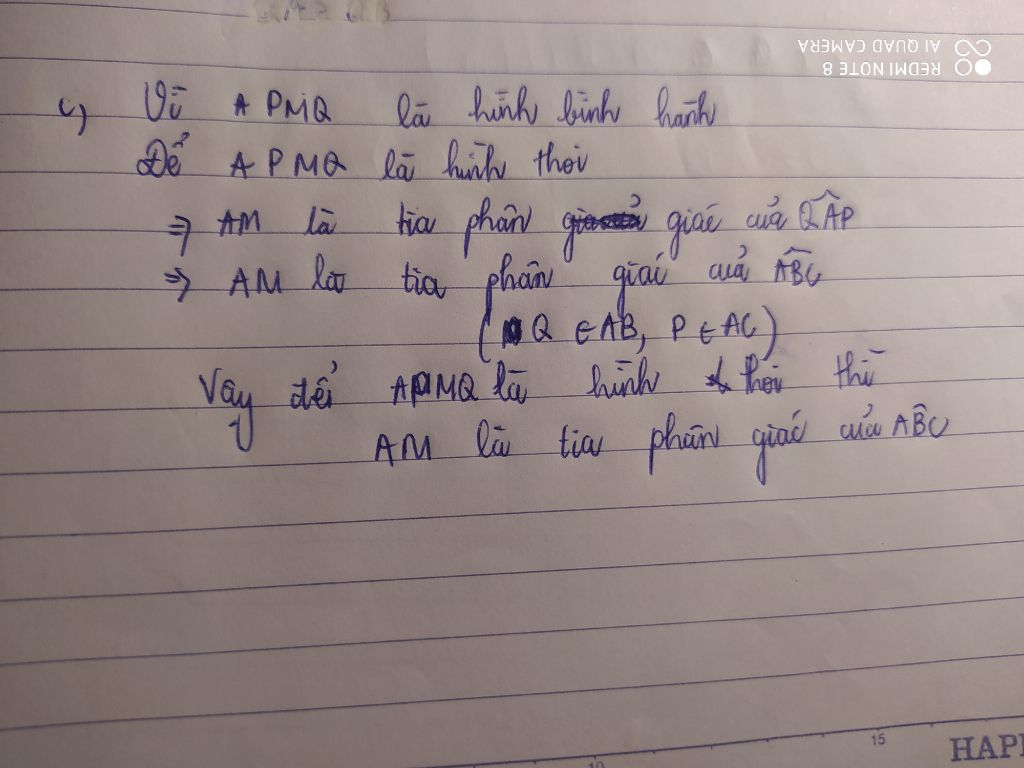 c) Vì APMQ là hình bình hành
Để APMQ là hình thoi
⇒ AM là tia phân giác của Q̂AP
⇒ AM là tia phân giác của ÂBC
( Q ∈ AB, P ∈ AC)
Vậy để APMQ là hình thoi thì
AM là tia phân giác của AB̂C
REDMI NOTE 8
AI QUAD CAMERA
15
10
HAPP